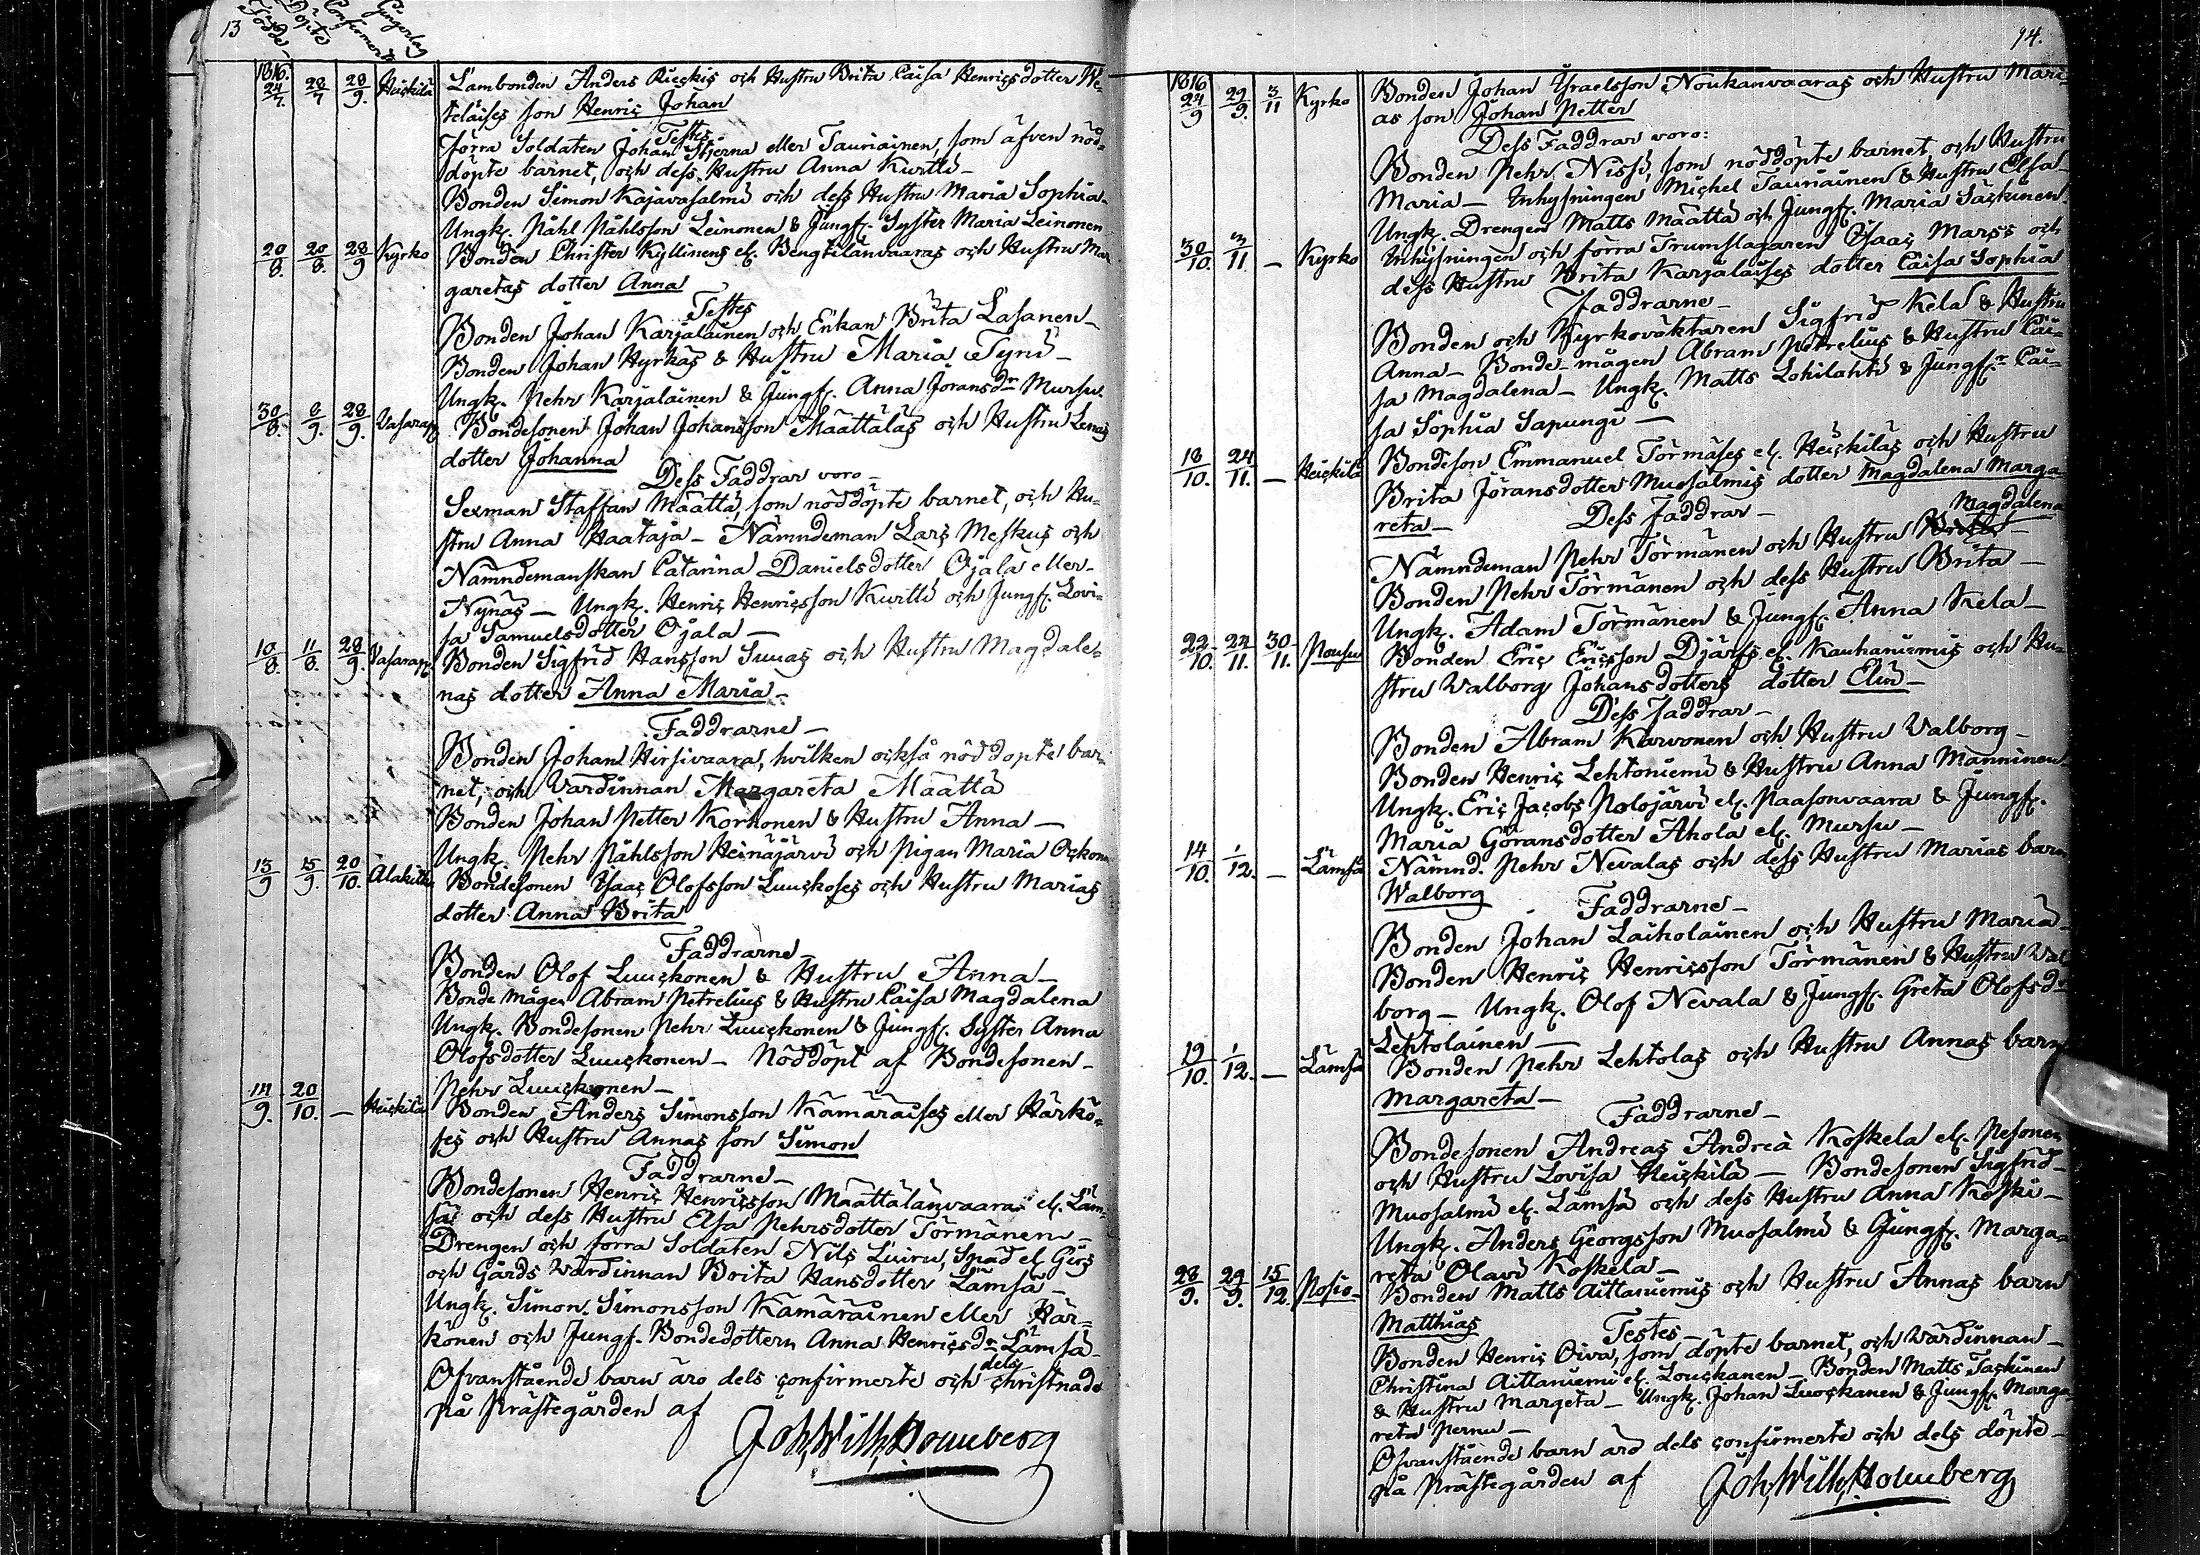 13 Födde Döpte Confirmerte Gingerlag
1816.
24/7. 28/7 28/9. Heickilä Lambonden Anders Kieckis och Hustru Brita Caisa Henricsdotter We-
teläises son Henric Johan
Testes
Förra Soldaten Johan Stjerna eller Tauriainen, som äfven nöd-
döpte barnet, och dess Hustru Anna Kurtti-
Bonden Simon Kajavasalmi och dess Hustru Maria Sophia-
Ungk. Påhl Påhlsson Leinonen & Jungf. Syster Maria Leinonen
20/8. 20/8. 28/9 Kyrko Bonden Christer Kyllinens el. Bengtilänvaaras och Hustru Mar
garetas dotter Anna
Testes
Bonden Johan Karjalainen och Enkan Brita Lasanen-
Bonden Johan Hyrkäs & Hustru Maria Tyni-
Ungk. Pehr Karjalainen & Jungf. Anna Jöransdr Mursu.
30/8. 8/9. 28/9. Vasarap Bondesonen Johan Johansson Määttäläs och Hustru Lenas
dotter Johanna
Dess Faddrar voro-
Sexman Staffan Määttä, som nöddöpte barnet, och Hu-
stru Anna Haataja- Nämndeman Lars Meskus och
Nämndemanskan Catarina Danielsdotter Ojala eller-
Nynäs- Ungk. Henric Henricsson Kurtti och Jungf. Lovi-
sa Samuelsdotter Ojala-
10/8. 11/8. 28/9. Vasarap Bonden Sigfrid Hansson Suuas och Hustru Magdale-
nas dotter Anna Maria-
Faddrarne-
Bonden Johan Hirsivaara, hvilken också nöddopte bar-
net, och Värdinnan Margareta Määttä
Bonden Johan Petter Korhonen & Hustru Anna-
Ungk. Pehr Påhlsson Heinäjärvi och Pigan Maria Ockonen
13/9 15/9. 20/10. Alakitka Bondesonen Isaac Olofsson Luuckoses och Hustru Marias
dotter Anna Brita
Faddrarne
Bonden Olof Luuckonen & Hustru Anna-
Bonde mågen Abram Petrelius & Hustru Caisa Magdalena
Ungk. Bondesonen Pehr Luuckonen & Jungf. Syster Anna
Olofsdotter Luuckonen- Nöddöpt af Bondesonen-
Pehr Luuckonen-
14/9. 20/10. - Heickilä Bonden Anders Simonsson Kämäräises eller Härkö-
ses och Hustru Annas son Simon
Faddrarne-
Bondesonen Henric Henricsson Määttälänvaara el. Läm-
sä och dess Hustru Elsa Pehrsdotter Törmänen-
Drengen och förra Soldaten Nils Luiru, Snäd el Girs
och Gårds Värdinnan Brita Hansdotter Lämsä-
Ungk. Simon Simonsson Kämäräinen eller Här-
könen och Jungf. Bondedottern Anna Henricsdr Lämsä-
Ofvanstående barn äro dels confirmerte och dels christnade
på Prästegården af
Joh, Wilh, Homberg
14.
1816
24/9 29/9. 3/11 Kyrko Bonden Johan Ysraelsson Noukanvaaras och Hustru Mari-
as son Johan Petter
Dess Faddrar voro:
Bonden Pehr Nissi, som nöddöpte barnet, och Hustru
Maria- Inhysningen Michel Tauriainen & Hustru Elsa-
Ungk. Drengen Matts Määttä och Jungf. Maria Säckinen
30/10. 3/11. - Kyrko Inhysningen och förra Trumslagaren Isaac Marss och
dess Hustru Brita Karjalaises dotter Caisa Sophia
Faddrarne-
Bonden och Kyrkoväktaren Sigfrid Kela & Hustru
Anna- Bonde-mågen Abram Petrelius & Hustru Cai-
sa Magdalena- Ungk. Matts Lohilahti & Jungfr Cai-
sa Sophia Sapungi-
18/10. 24/11. - Heickilä Bondeson Emmanuel Törmäses el. Heickiläs och Hustru
Brita Jöransdotter Muosalmis dotter Magdalena Marga-
reta- Dess Faddrar- Magdalena
Nämndeman Pehr Törmänen och Hustru Brita-
Bonden Pehr Törmänen och dess Hustru Brita-
Ungk. Adam Törmänen & Jungf. Anna Kela-
22/10. 24/11. 30/11. Pousu Bonden Eric Ericsson Djärfs el. Kauhaniemis och Hu-
stru Walborg Johansdotters dotter Elin-
Dess Faddrar-
Bonden Abram Karvonen och Hustru Valborg-
Bonden Henric Lehtoniemi & Hustru Anna Manninen
Ungk. Eric Jacobs Polojärvi el. Paasonvaara & Jungf.
Maria Göransdotter Ahola el. Mursu-
14/10. 1/12. - Lämsä Nämnd. Pehr Nevalas och dess Hustru Marias barn
Walborg Faddrarne-
Bonden Johan Laiholainen och Hustru Maria-
Bonden Henric Henricsson Törmänen & Hustru Val
borg- Ungk. Olof Nevala & Jungf. Greta Olofsdr
Lehtolainen-
19/10. 1/12. - Lämsä Bonden Pehr Lehtolas och Hustru Annas barn
Margareta-
Faddrarne-
Bondesonen Andreas Andreä Koskela el. Pesonen
och Hustru Lovisa Heickilä- Bondesonen Sigfrid-
Muosalmi el. Lämsä och dess Hustru Anna Koski-
Ungk. Anders Georgsson Muosalmi & Jungf. Marga-
reta Olavi Koskela-
28/9. 29/9. 15/12. Posio- Bonden Matts Aittaniemis och Hustru Annas barn
Matthias Testes-
Bonden Henric Oiva, som döpte barnet, och Värdinnan-
Christina Aittaniemi el. Louckanen- Bonden Matts Tackinen
& Hustru Margeta- Ungk. Johan Luockanen & Jungf. Marga-
reta Pernu-
Ofvanstående barn äro dels confirmerte och dels döpte-
på Prästegården af Joh, Wilh, Homberg